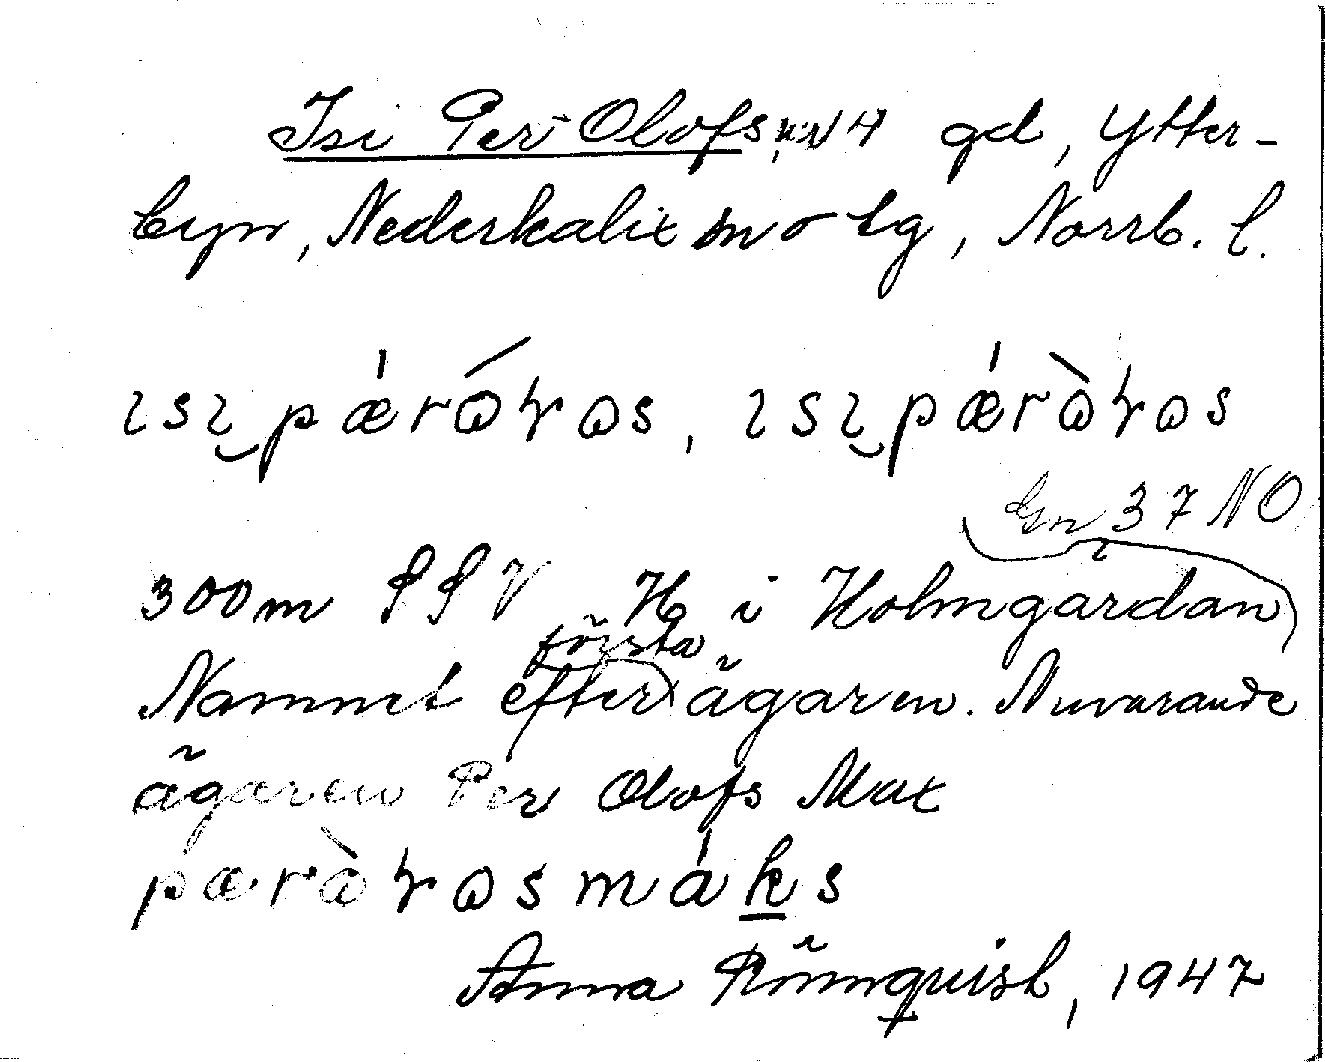 Isi Per-Olofs, gd, Ytter-
byn, Nederkalix sn o tg, Norrb. l.
ısı pǽrώɽωs, ısı pǽrὼɽωs
Gn 37 NO
300 m SSV H i Holmgårdan
första
Namnet efter ägaren. Nuvarande
ägaren Per Olofs Max
pærὼɽωsmáks
Anna Rönnquist, 1947